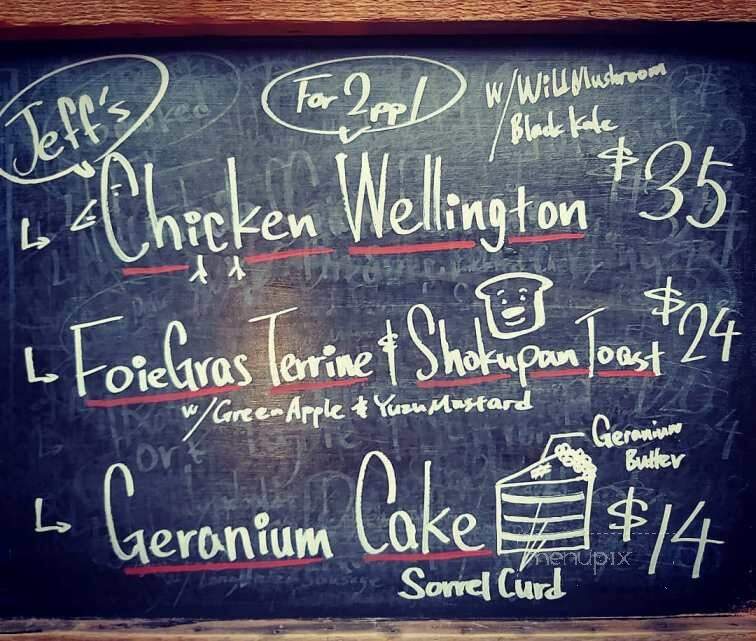 Jeff's
For 2ppl
w/ Will Mushroom
Black Kale
Chicken Wellington $35
Foie Gras Terrine & Shokupan Toast $24
w/ Green Apple & Yuzu Mustard
Geranium
Butter
Geranium Cake $14
Sorrel Curd
menupix